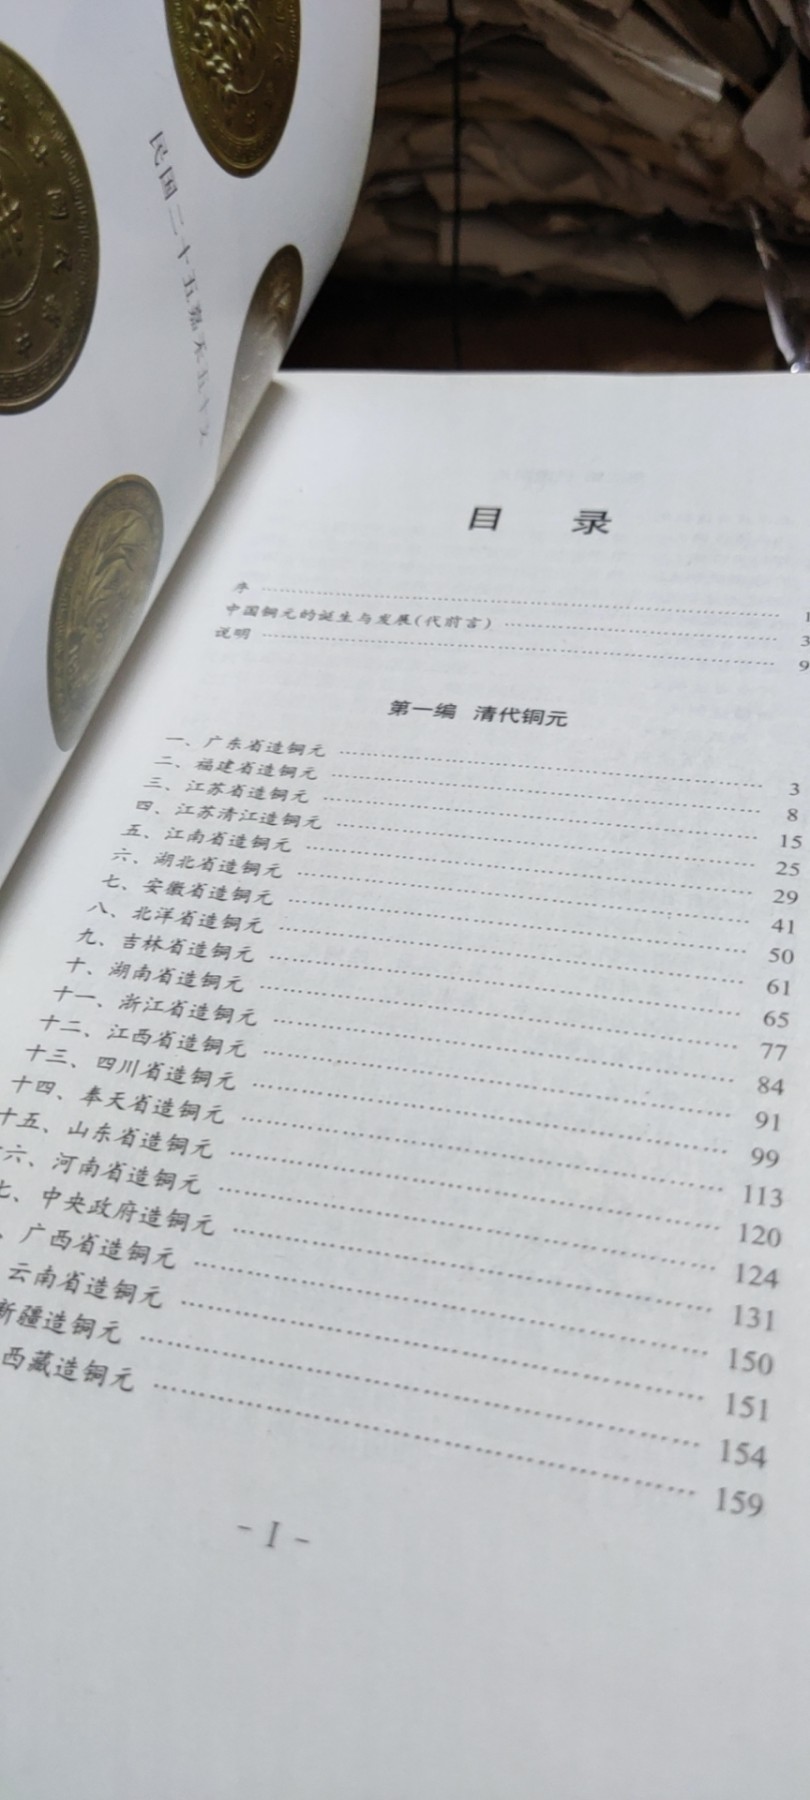 民国二十五嘉禾五十文
目 录
序 1
中国铜元的诞生与发展(代前言) 3
说明 9
第一编 清代铜元
一、广东省造铜元 3
二、福建省造铜元 8
三、江苏省造铜元 15
四、江苏清江造铜元 25
五、江南省造铜元 29
六、湖北省造铜元 41
七、安徽省造铜元 50
八、北洋省造铜元 61
九、吉林省造铜元 65
十、湖南省造铜元 77
十一、浙江省造铜元 84
十二、江西省造铜元 91
十三、四川省造铜元 99
十四、奉天省造铜元 113
十五、山东省造铜元 120
六、河南省造铜元 124
七、中央政府造铜元 131
、广西省造铜元 150
云南省造铜元 151
新疆造铜元 154
西藏造铜元 159
- I -